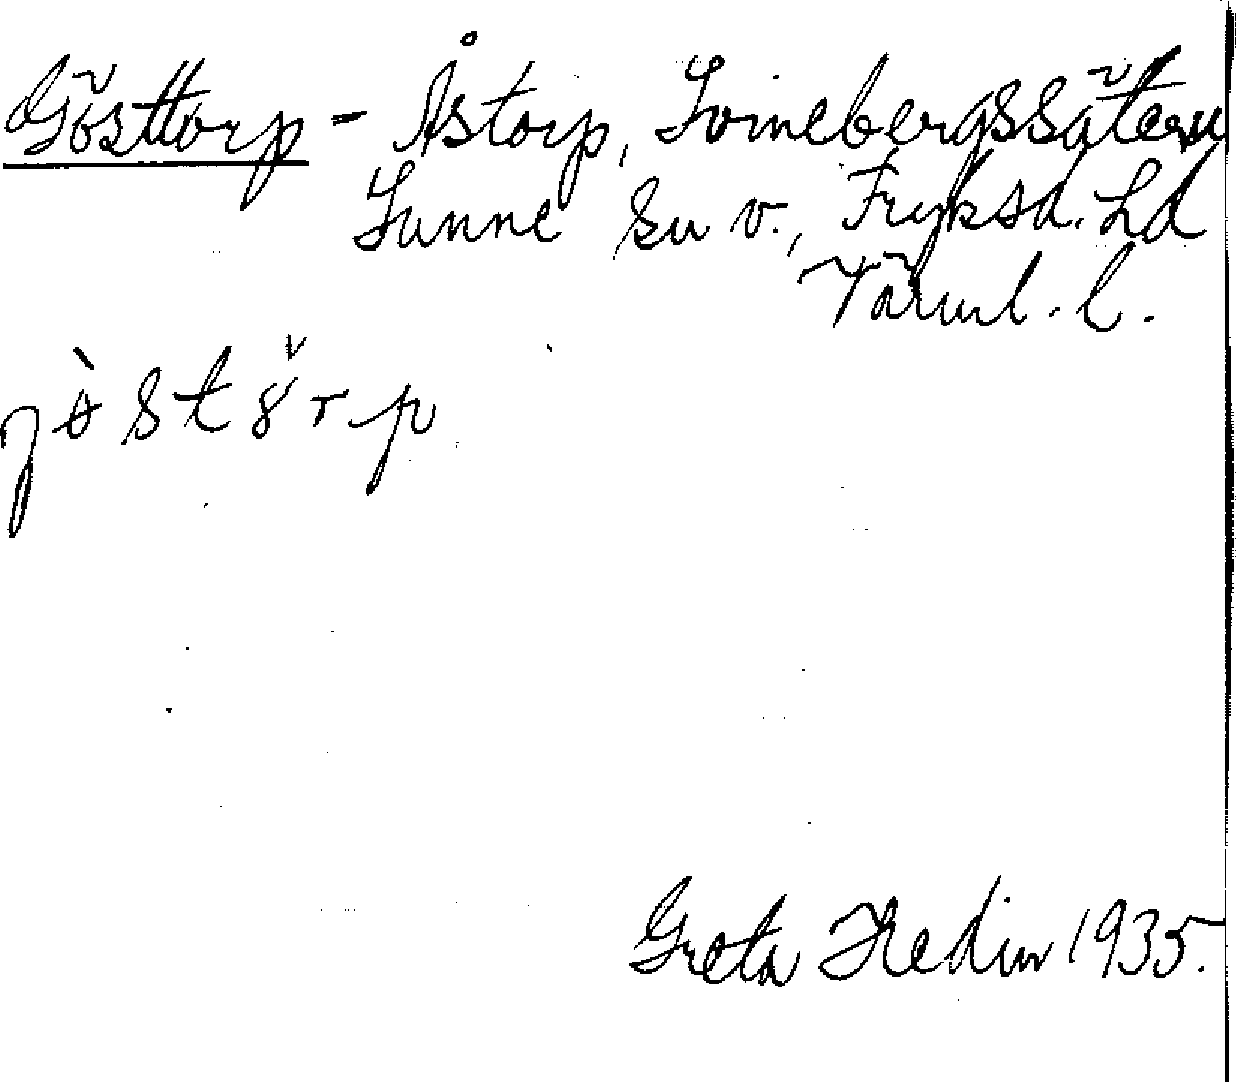 Gösttorp - Åstorp, Svinebergssätern
Sunne sn v., Fryksd. hd
Värml. l.
jòstörp
Greta Hedin 1935.